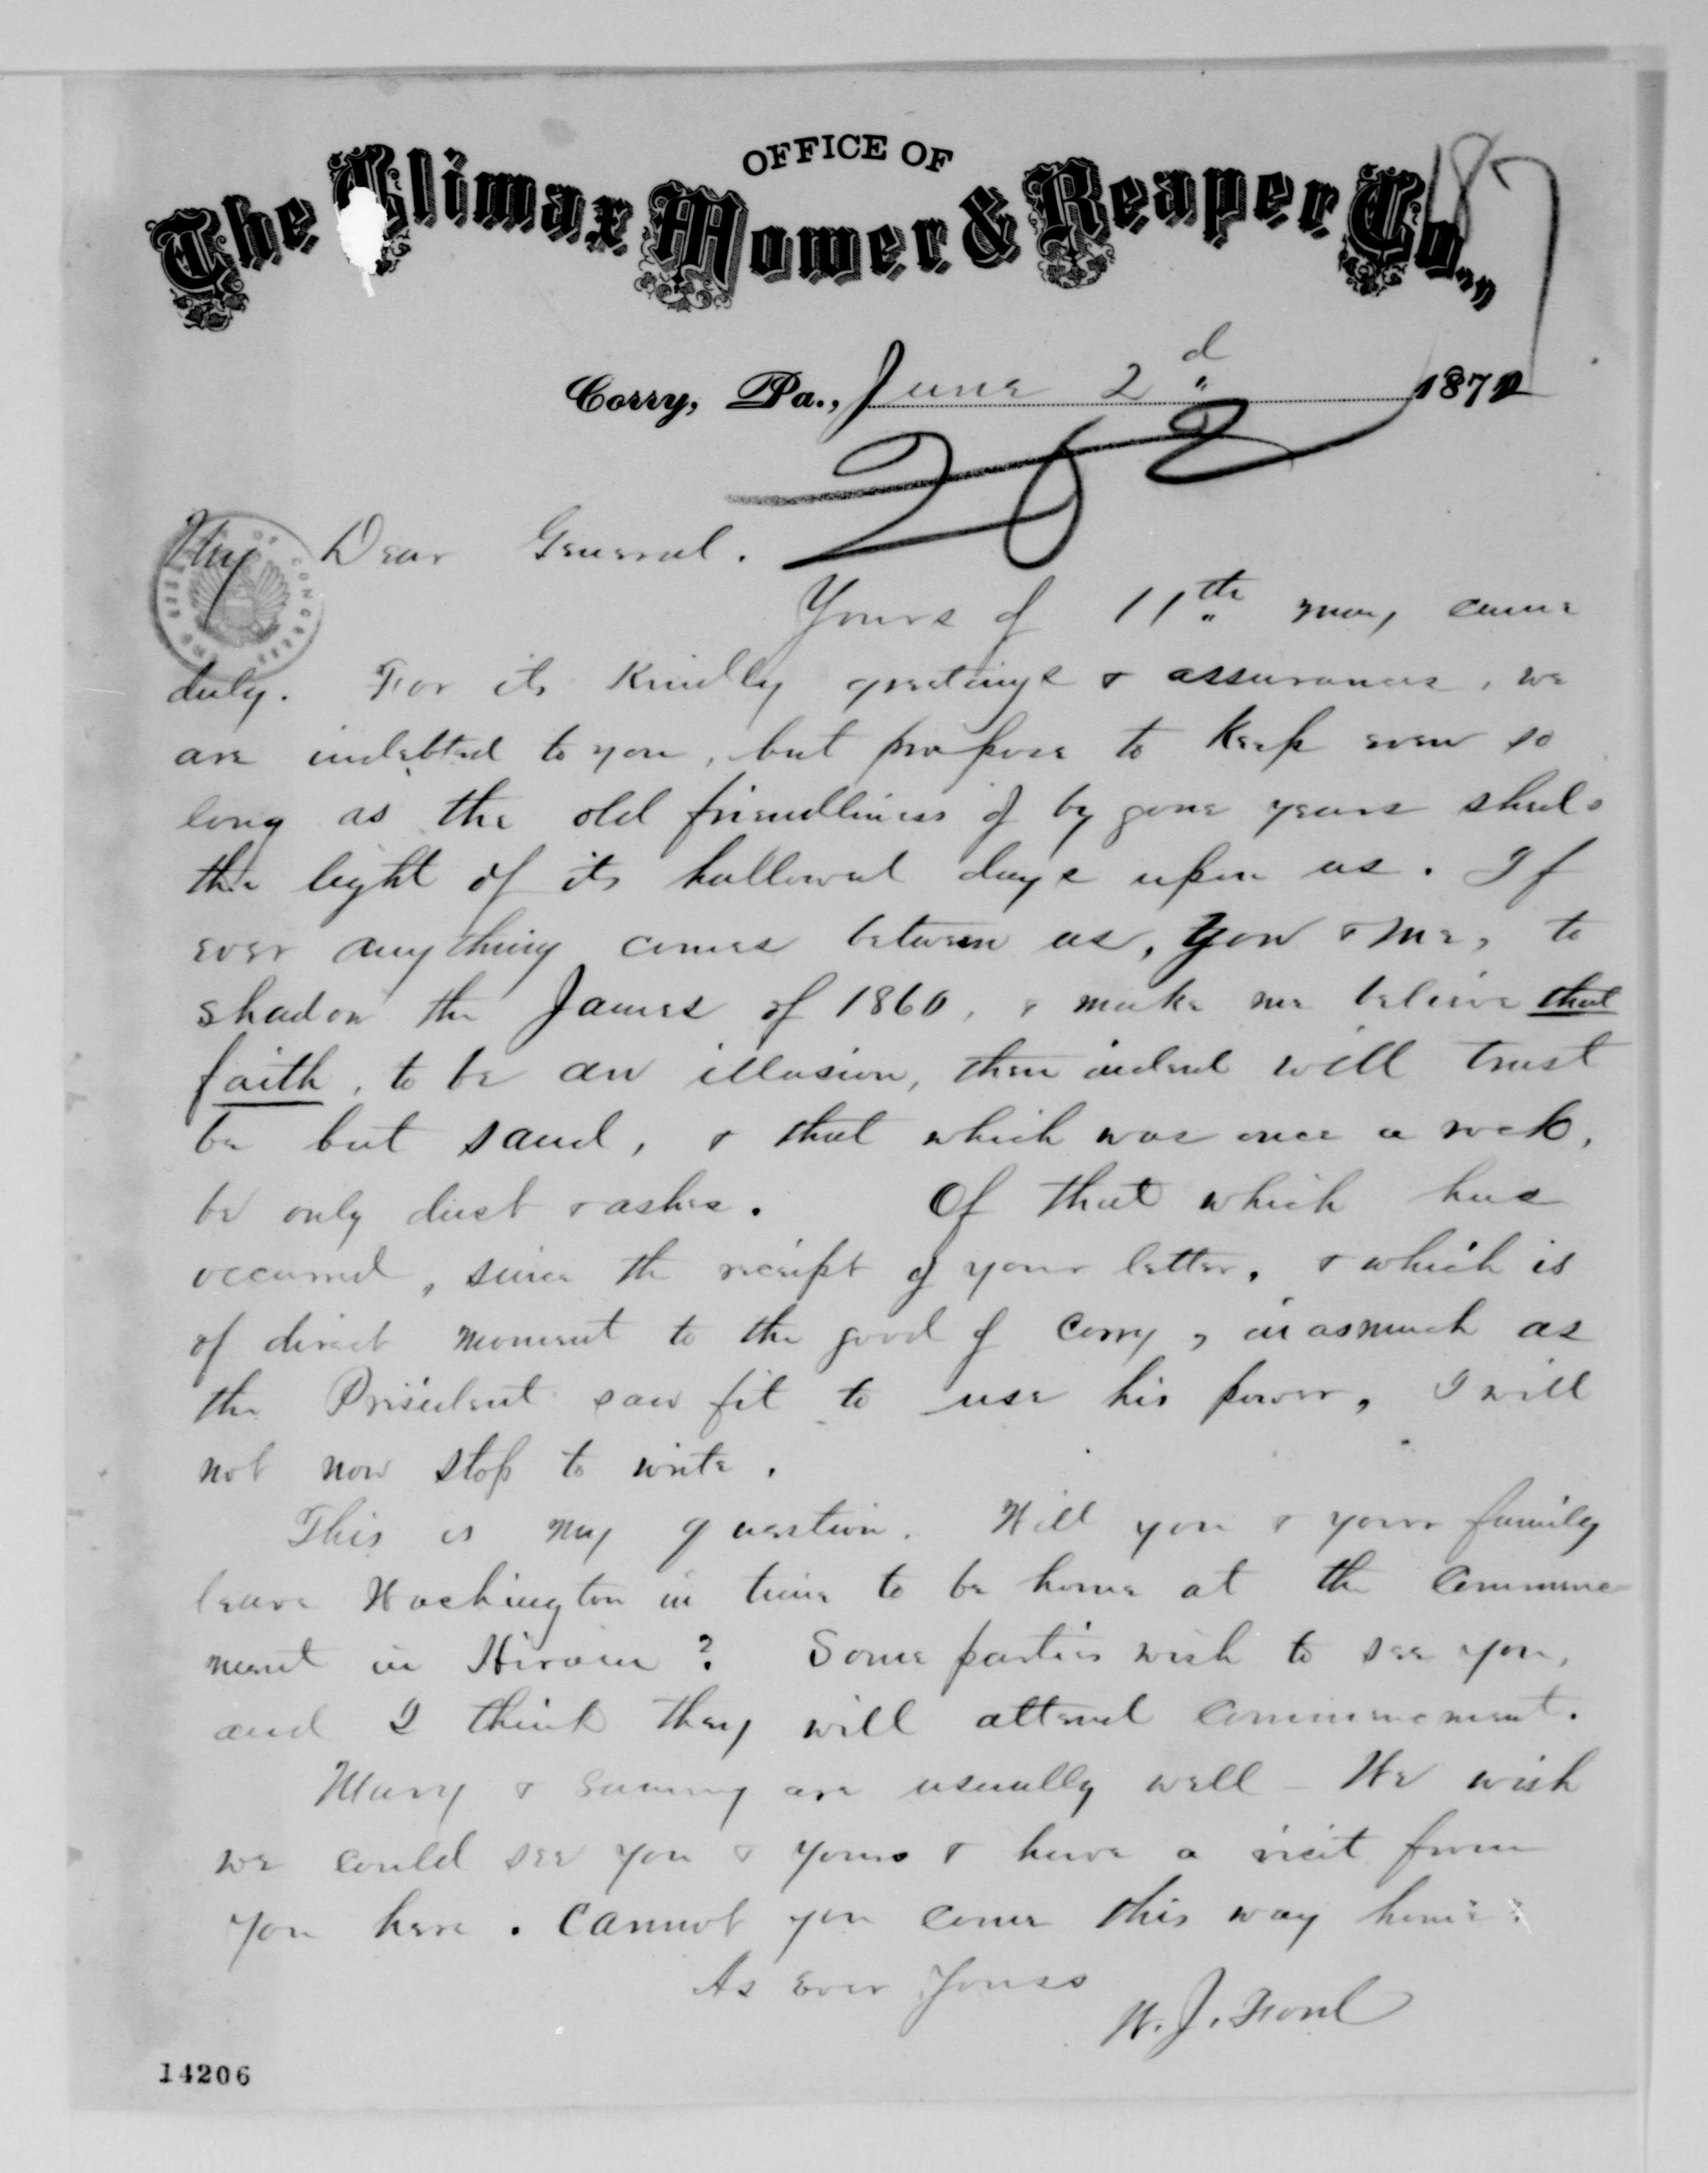 OFFICE OF
The Climax Mower & Reaper Co.,
187
Corry, Pa., June 2d 1872
My Dear General.
Yours of 11th May came
duly. For its kindly greetings & assurances, we
are indebted to you, but propose to keep even so
long as the old friendliness of by gone years sheds
the light of its hallowed days upon us. If
ever anything comes between us, you & me, to
shadow the James of 1860, & make me believe that
faith, to be an illusion, then indeed will trust
be but sand, & that which was once a rock,
be only dust & ashes. Of that which has
occurred, since the receipt of your letter, & which is
of direct moment to the good of Corry, in asmuch as
the President saw fit to use his power, I will
not now stop to write.
This is my question. Will you & your family
leave Washington in time to be home at the Commence
ment in Hiram? Some parties wish to see you,
and I think they will attend Commencement.
Mary & Sammy are usually well – We wish
we could see you & yours & have a visit from
you here. Cannot you come this way home?
As Ever Yours
W. J. Ford
14206